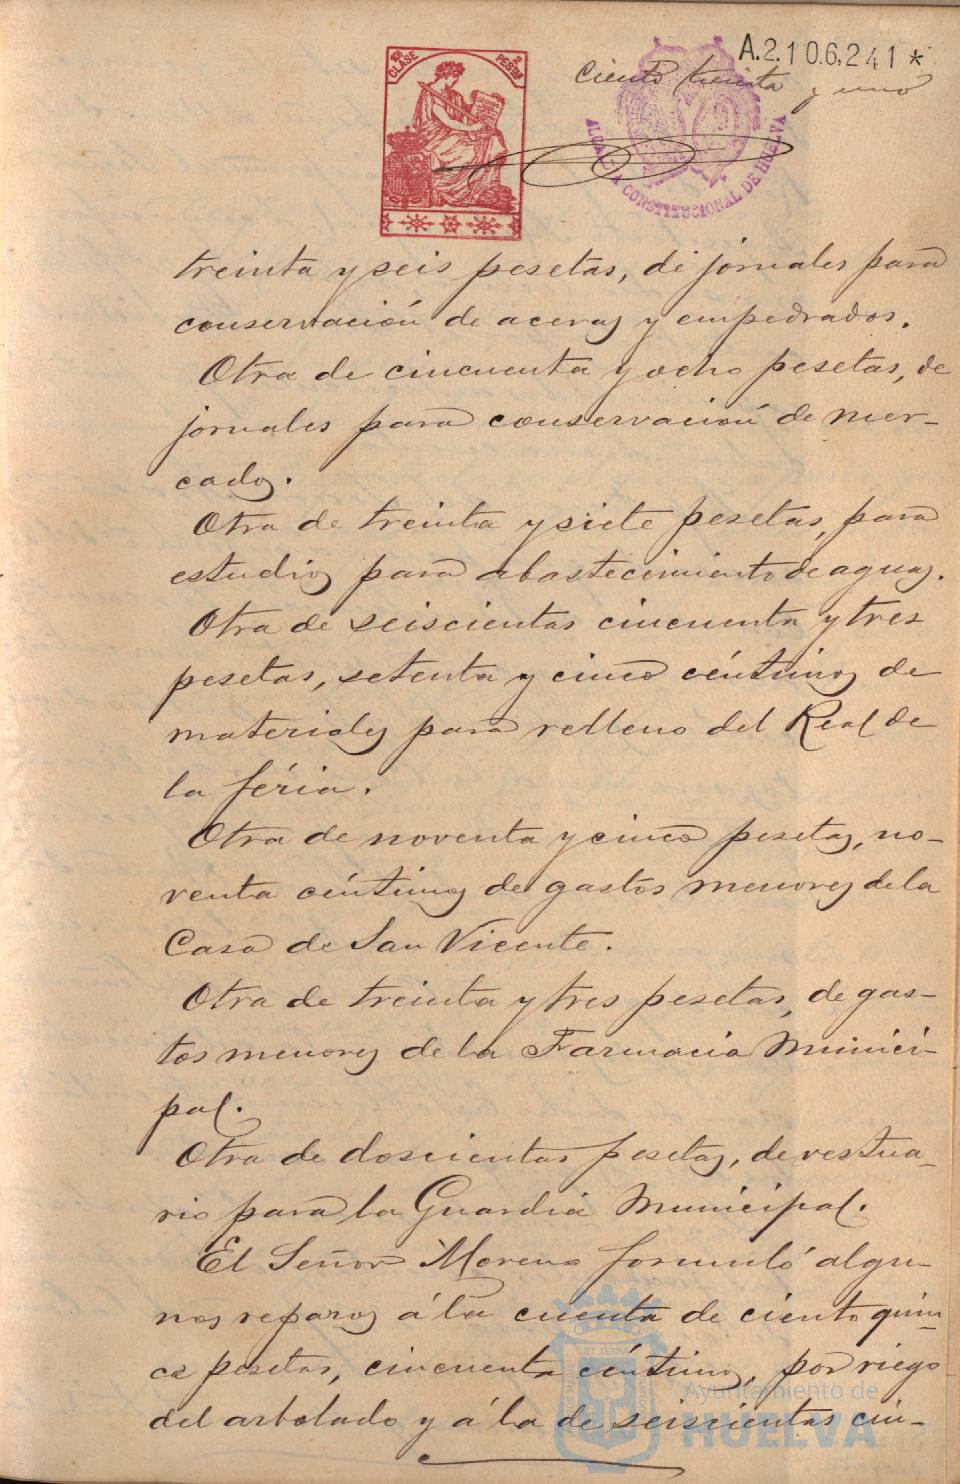 10ª CLASE
2 PESETAS
A.2.106.241 *
Ciento treinta y uno
ALCALDIA CONSTITUCIONAL DE HUELVA
treinta y seis pesetas, de jornales para
conservación de aceras y empedrados.
Otra de cincuenta y ocho pesetas, de
jornales para conservación de mer-
cados.
Otra de treinta y siete pesetas, para
estudios para abastecimiento de aguas.
Otra de seiscientas cincuenta y tres
pesetas, setenta y cinco céntimos de
materiales para relleno del Real de
la féria.
Otra de noventa y cinco pesetas, no-
venta céntimos de gastos menores de la
Casa de San Vicente.
Otra de treinta y tres pesetas, de gas-
tos menores de la Farmacia Munici-
pal.
Otra de doscientas pesetas, de vestua-
rio para la Guardia Municipal.
El Señor Moreno formuló algu-
nos reparos á la cuenta de ciento quin-
ce pesetas, cincuenta céntimos, por riego
del arbolado y á la de seiscientas cin-
Ayuntamiento de
HUELVA